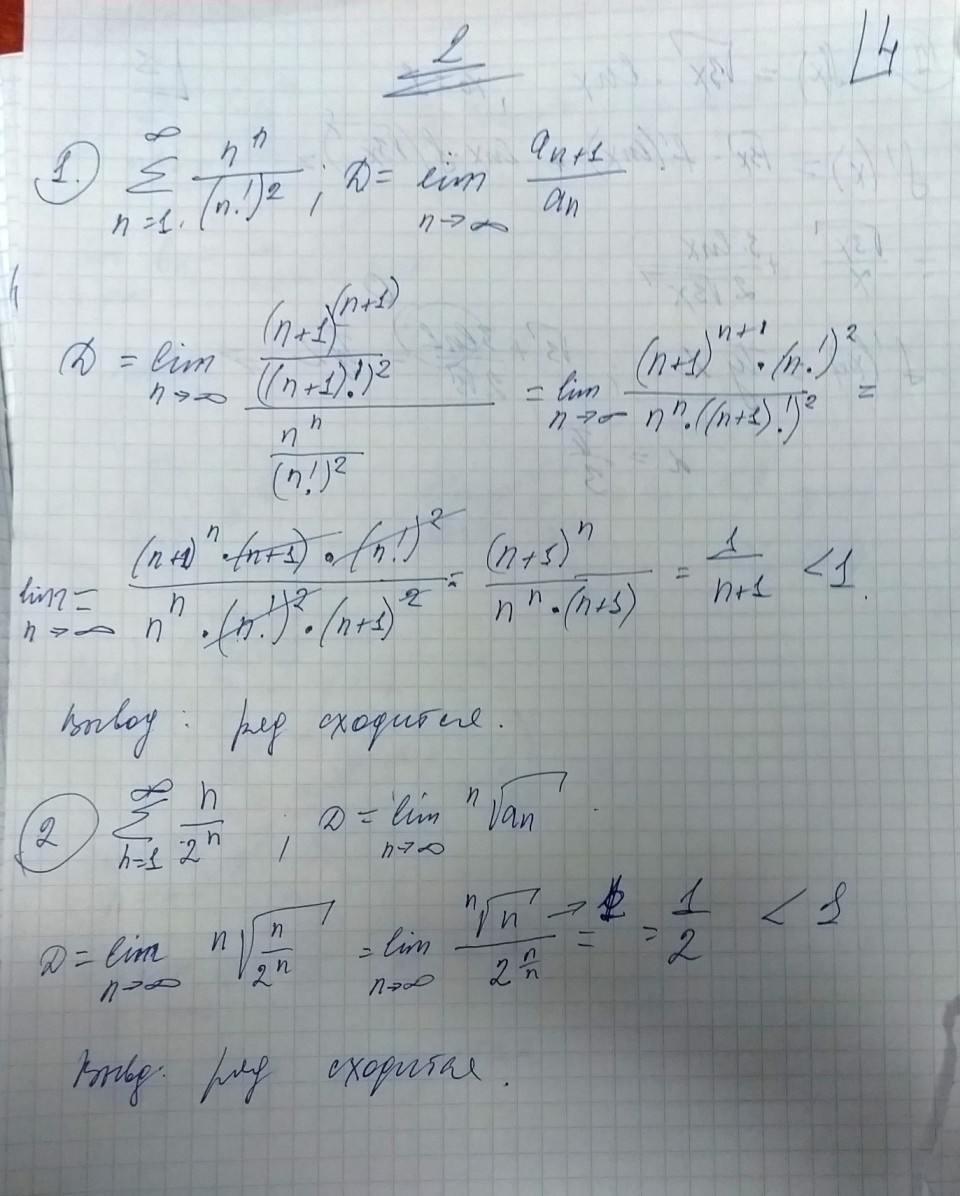 2
4
1. ∑_{n=1}^{∞} n^n/(n!)^2 ; D = lim_{n→∞} a_{n+1}/a_n
D = lim_{n→∞} ((n+1)^{(n+1)}/((n+1)!)^2)/(n^n/(n!)^2) = lim_{n→∞} ((n+1)^{n+1}·(n!)^2)/(n^n·((n+1)!)^2) =
lim_{n→∞} = ((n+1)^n·(n+1)·(n!)^2)/(n^n·(n!)^2·(n+1)^2) = (n+1)^n/(n^n·(n+1)) = 1/(n+1) < 1.
Вывод: ряд сходится.
2 ∑_{n=1}^{∞} n/2^n ; D = lim_{n→∞} ⁿ√a_n .
D = lim_{n→∞} ⁿ√(n/2^n) = lim_{n→∞} ⁿ√n → 1/2^{n/n} = = 1/2 < 1
Вывд: ряд сходится.